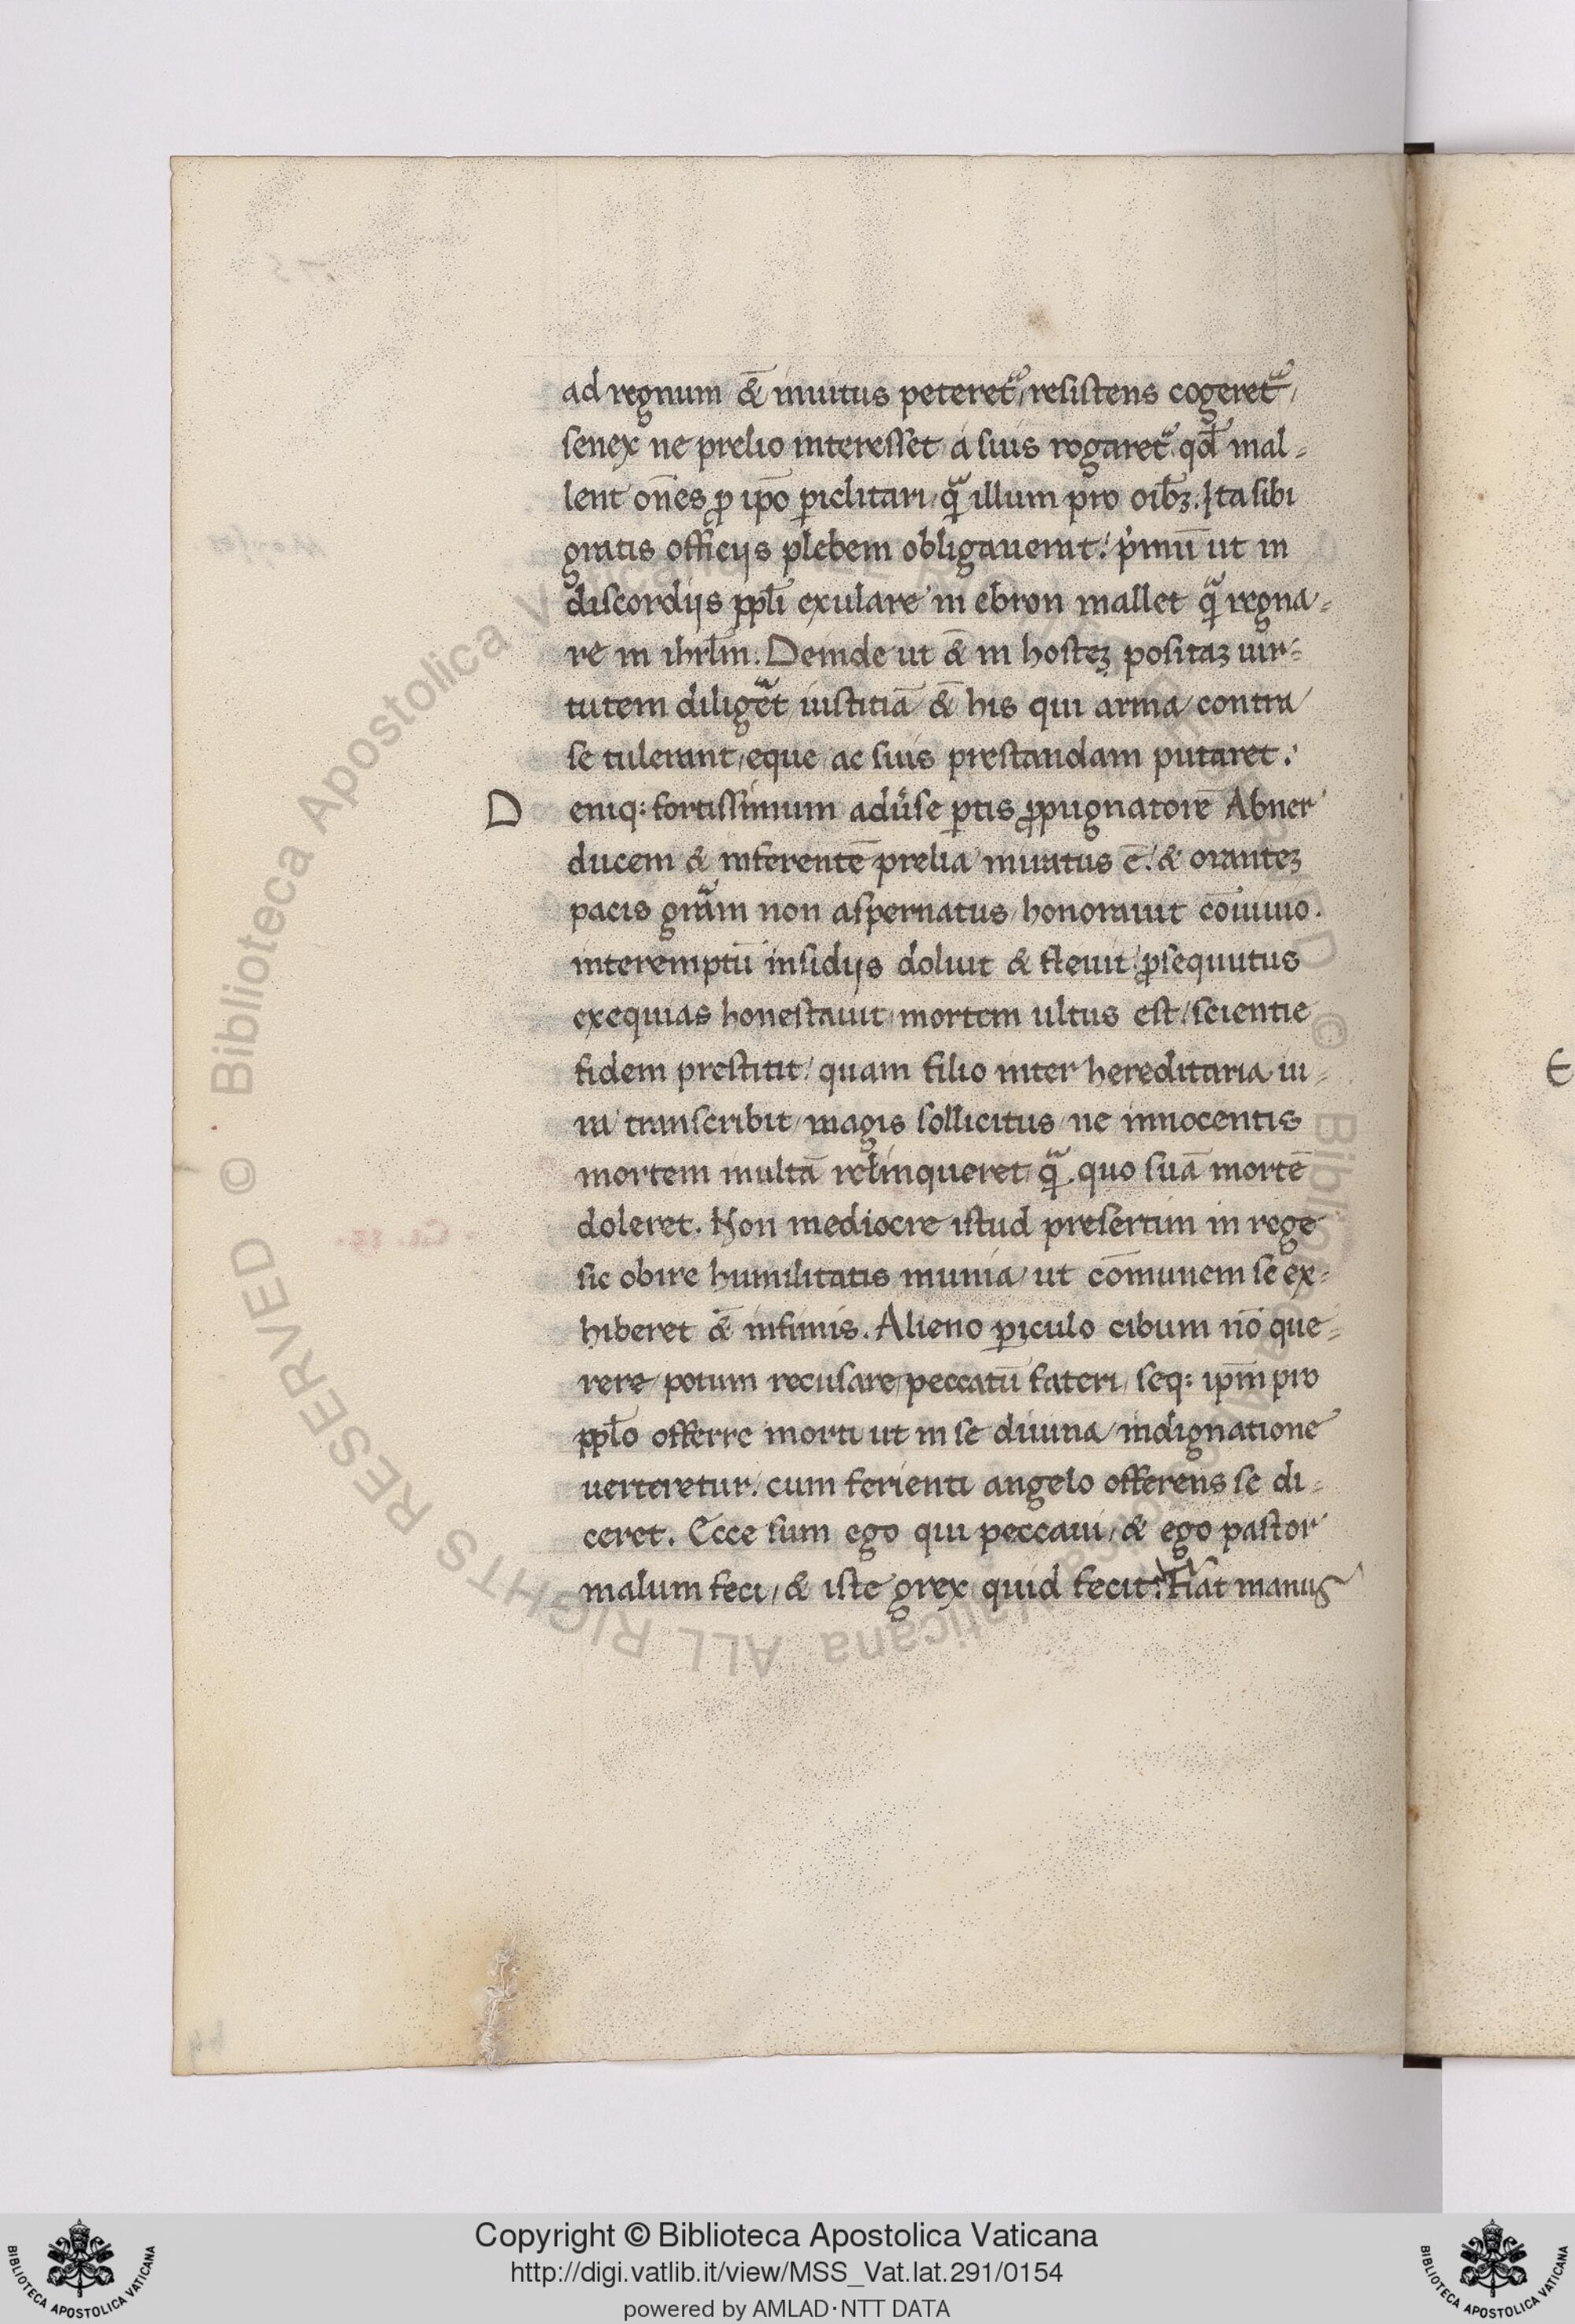 ad regnum &̄ inuitus peteret᷑/resistens cogeret᷑/
senex ne prelio interesset a suis rogaret᷑ qd̄ mal-
lent on̄es ꝓ ip̄o ꝑiclitari/ q̣ͣ illum pro oib̄ꝫ. Ita sibi
gratis officijs plebem obligauerat: p̓imū ut in
discordijs ppl̄i exulare in ebron mallet q̣ͣ regna-
re in ihrl̄m. Deinde ut &̄ in hosteꝫ positaꝫ uir-
tutem diliget᷑ iustitiā &̄ his qui arma/contra/
se tulerant/eque ac suis prestandam putaret.
D eniq: fortissimum adūse ꝑtis ꝓpugnatorē Abner
ducem & inferentē prelia miratus ē. & oranteꝫ
pacis gram non aspernatus/honorauit cōuiuio.
interemptū insidijs doluit & fleuit ꝓsequutus
exequias honestauit/mortem ultus est/scientie
fidem prestitit/quam filio inter hereditaria iu-
ra transcribit/magis sollicitus/ne innocentis
mortem multā relinqueret q̣ͣ. quo suā mortē
doleret. Non mediocre istud presertim in rege
sic obire humilitatis munia/ut cōmunem se ex-
hiberet &̄ infimis. Alieno ꝑiculo cibum nō que-
rere/potum recusare/peccatū fateri/seq: ip̄m pro
ppl̄o offerre morti ut in se diuina/indignatione
uerteretur/cum ferienti angelo offerens se di-
ceret. Ecce sum ego qui peccaui/& ego pastor
malum feci/& iste grex quid fecit: Fiat manus
© Biblioteca Apostolica Vaticana ALL RIGHTS RESERVED
Copyright © Biblioteca Apostolica Vaticana
http://digi.vatlib.it/view/MSS_Vat.lat.291/0154
powered by AMLAD·NTT DATA
BIBLIOTECA APOSTOLICA VATICANA
BIBLIOTECA APOSTOLICA VATICANA